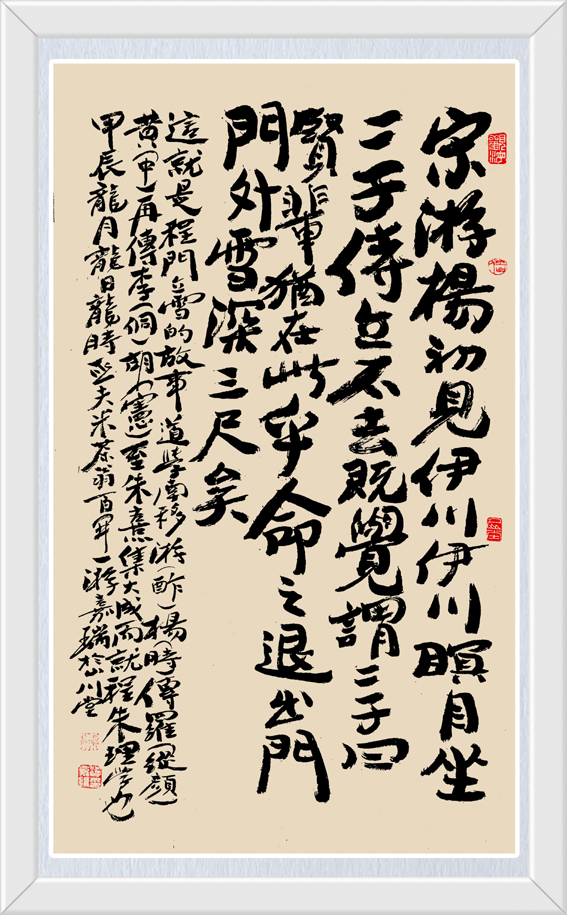 宋游楊初見伊川伊川瞑目坐
二子侍立不去既覺謂二子曰
賢輩猶在此乎命之退出門
門外雪深三尺矣
這就是程門立雪的故事道學南移游(酢)楊時傳羅(縱顏)
黃(中)再傳李(侗)胡(憲)至朱熹集大成而就程朱理學也
甲辰龍月龍日龍時 夫米茶翁百 游嘉瑞 川堂